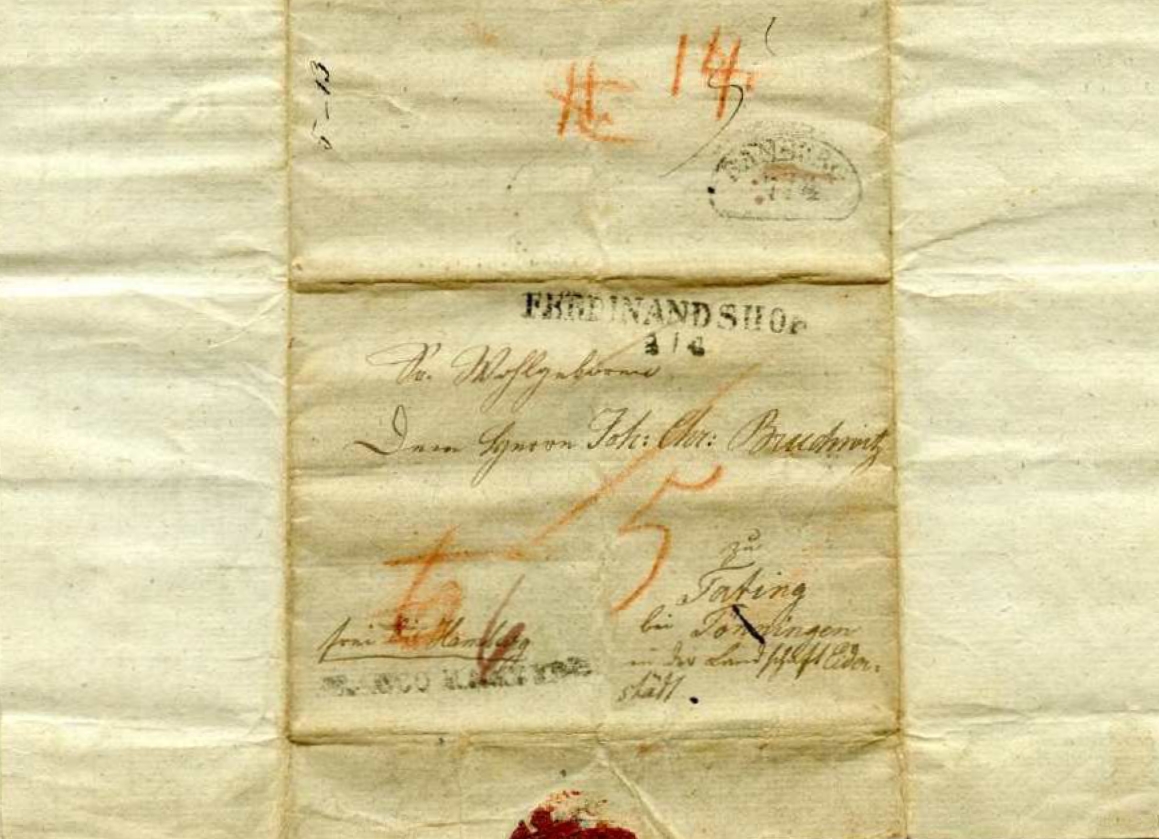 5-13
14
HAMBURG
7/4
FERDINANDSHOF
4/4
Sr. Wohlgeboren
Dem Herrn Joh: Chr: Bruchwitz
5
zu
Tating
frei bis Hamburg
bei Tönningen
in der Landschaft Eider-
städt.
FRANCO